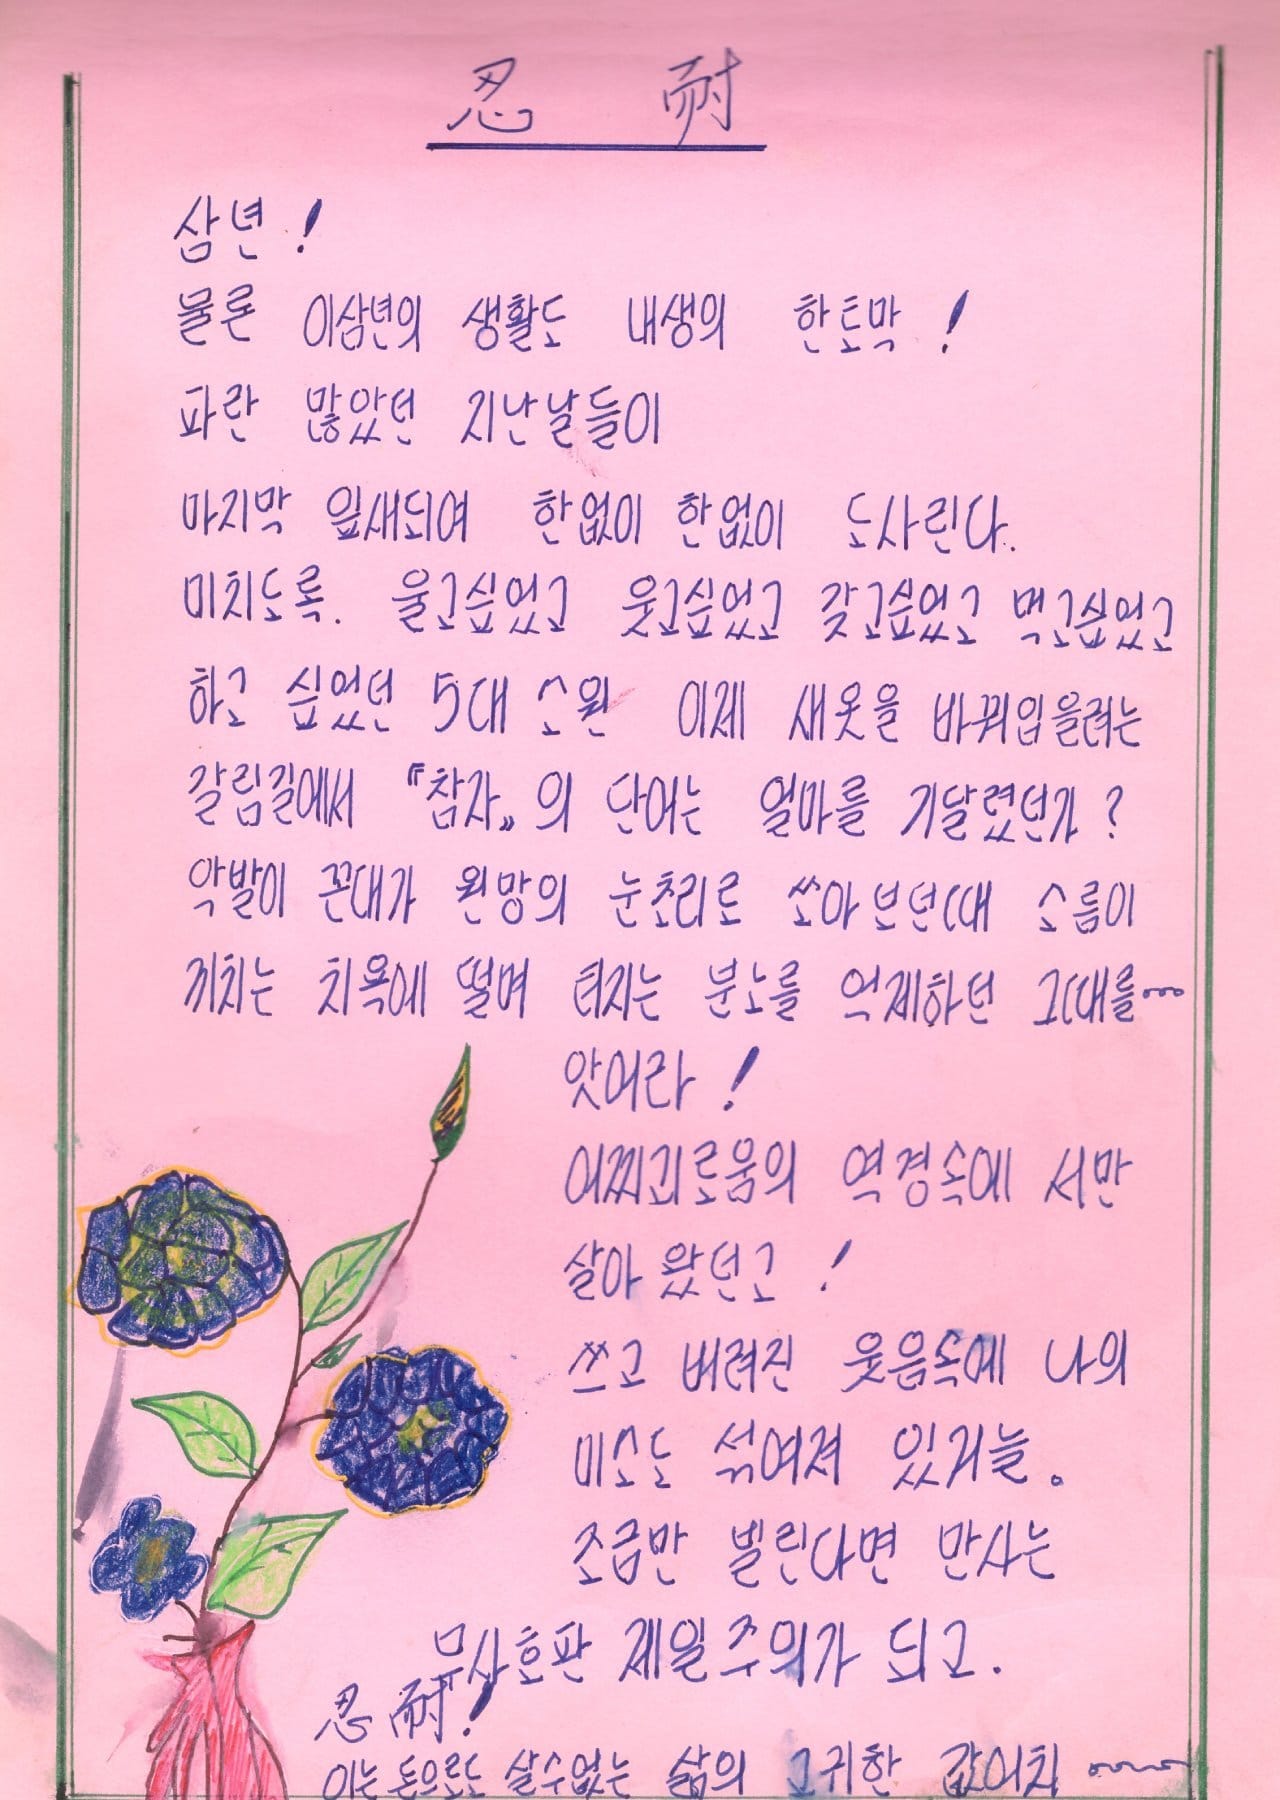 忍 耐
삼년!
물론 이삼년의 생활도 내생의 한토막!
파란 많았던 지난날들이
마지막 잎새되여 한없이 한없이 도사린다.
미치도록. 울고싶었고 웃고싶었고 갖고싶었고 먹고싶었고
하고 싶었던 5대 소원 이제 새옷을 바꿔입을려는
갈림길에서 『참자』의 단어는 얼마를 기달렸던가?
악발이 꼰대가 원망의 눈초리로 쏘아보던때 소름이
끼치는 치욕에 떨며 터지는 분노를 억제하던 그때를~~~
앗어라!
어찌괴로움의 역경속에서만
살아 왔던고!
쓰고 버려진 웃음속에 나의
미소도 섞여져 있거늘.
조금만 빌린다면 만사는
무사호판 제일주의가 되고.
忍耐!
이는 돈으로도 살수없는 삶의 고귀한 값어치~~~~